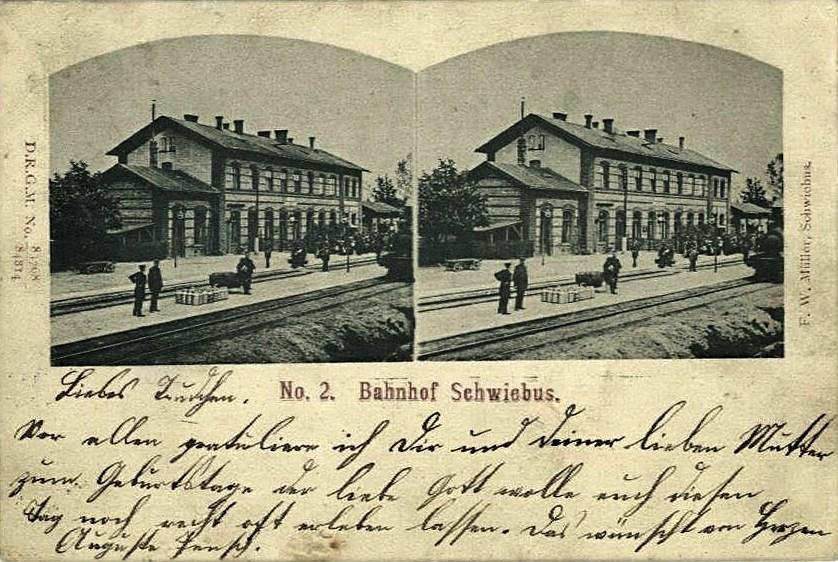 D.R.G.M. No. 84314
F. W. Müller, Schwiebus.
No. 2. Bahnhof Schwiebus.
Liebes Trudchen.
Vor allen gratuliere ich Dir und deiner lieben Mutter
zum Geburtstage der liebe Gott wolle euch diesen
Tag noch recht oft erleben lassen. Das wünscht von Herzen
Auguste